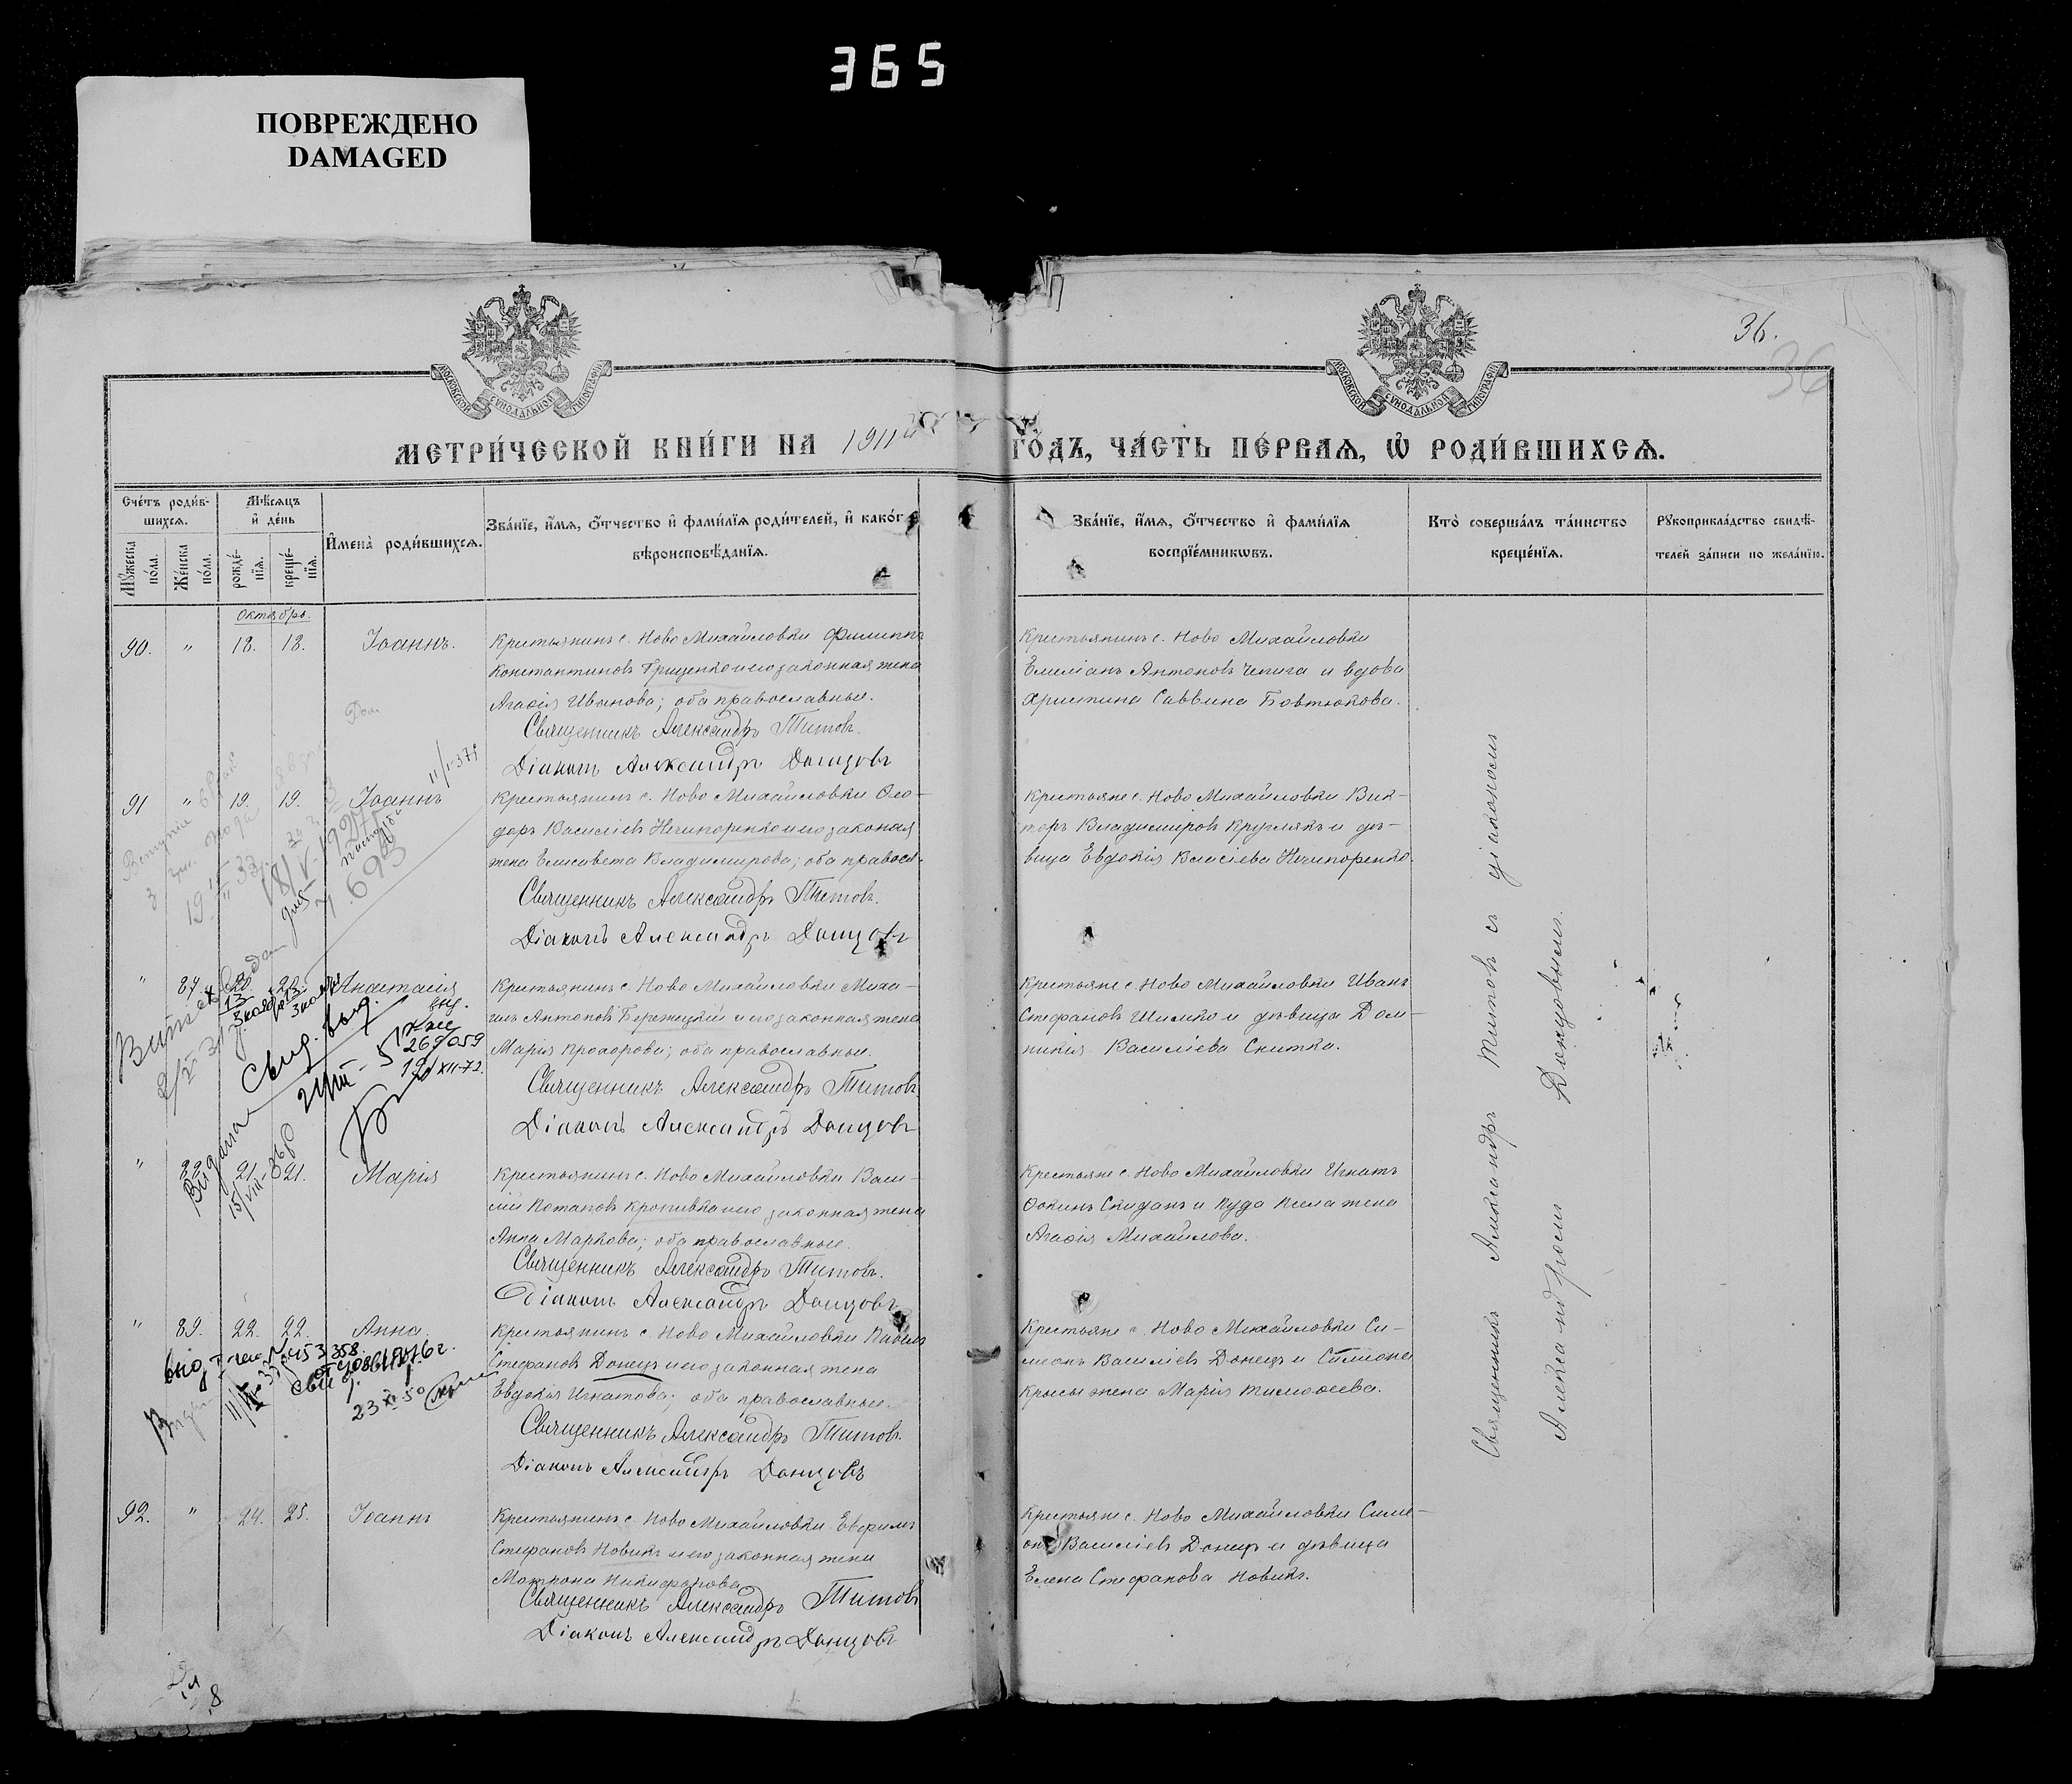 365
ПОВРЕЖДЕНО
DAMAGED
36.
36
МОСКОВСКОЙ СУНОДАЛЬНОЙ ТИПОГРАФІИ
МОСКОВСКОЙ СУНОДАЛЬНОЙ ТИПОГРАФІИ
МЕТРИ́ЧЕСКОЙ КНИ́ГИ НА 1911й ГО́ДЪ, ЧА́СТЬ ПЕ́РВАѦ, Ѽ РОДИ́ВШИХСѦ.
Сче́тъ роди́в-
шихсѧ.
Мѣ́сѧцъ
и҆ де́нь
Мꙋ́жеска по́ла.
Же́нска по́ла.
рожде́-
нїѧ.
креще́-
нїѧ.
И҆мена̀ роди́вшихсѧ.
Зва́нїе, и҆́мѧ, ѻ҆́тчество и҆ фами́лїѧ роди́телей, и҆ како́г
вѣроисповѣ́данїѧ.
Зва́нїе, и҆́мѧ, ѻ҆́тчество и҆ фами́лїѧ
воспрїе́мникѡвъ.
Кто̀ соверша́лъ та́инство
креще́нїѧ.
Рꙋкоприкла́дство свидѣ́-
телей за́писи по жела́нїю.
Октябрь.
90. " 18. 18. Іоаннъ.
Крестьянинъ с. Ново Михайловки Филиппъ
Константиновъ Гриценко и его законная жена
Агаѳія Иванова; оба православные.
Священникъ Александръ Титовъ.
Діаконъ Александръ Донцовъ
Крестьянинъ с. Ново Михайловки
Емеліанъ Антоновъ Чепига и вдова
Христина Саввина Бовтюкова.
91 " 19. 19. Іоаннъ
Крестьянинъ с. Ново Михайловки Ѳео-
доръ Василіевъ Нечипоренко и его законая
жена Елисавета Владимирова; оба правосл.
Священникъ Александръ Титовъ.
Діаконъ Александръ Донцовъ
Крестьяне с. Ново Михайловки Вик-
торъ Владимировъ Круглякъ и дѣ-
вица Евдокія Власіева Нечипоренко.
" 87. 20. 22. Анастасія
Крестьянинъ с. Ново Михайловки Миха-
илъ Антоновъ Бережецкій и его законная жена
Марія Прохорова; оба православные.
Священникъ Александръ Титовъ
Діаконъ Александръ Донцовъ
Крестьяне с. Ново Михайловки Иванъ
Стефановъ Шимко и дѣвица Дом-
никія Василіева Скитка.
" 88. 21. 21. Марія
Крестьянинъ с. Ново Михайловки Васи-
лій Потаповъ Кропивка и его законная жена
Анна Маркова; оба православные.
Священникъ Александръ Титовъ.
Діаконъ Александръ Донцовъ
Крестьяне с. Ново Михайловки Игнатъ
Ѳокинъ Скиданъ и
Агаѳія Михайлова.
" 89. 22. 22. Анна
Крестьянинъ с. Ново Михайловки Павелъ
Стефановъ Донецъ и его законная жена
Евдокія Игнатова; оба православные.
Священникъ Александръ Титовъ.
Діаконъ Александръ Донцовъ
Крестьяне с. Ново Михайловки Си-
меонъ Василіевъ Донецъ и Симеона
жена Марія Тимоѳеева.
92. " 24. 25. Іоаннъ
Крестьянинъ с. Ново Михайловки Евфимъ
Стефановъ Новикъ и его законная жена
Матрона Никифорова
Священникъ Александръ Титовъ
Діаконъ Александръ Донцовъ
Крестьяне с. Ново Михайловки Симе-
онъ Василіевъ Донецъ и дѣвица
Елена Стефанова Новикъ.
Священникъ Александръ Титовъ съ діакономъ
Александромъ Донцовымъ.
Свид. выд.
269059
7.693
23 XI 50